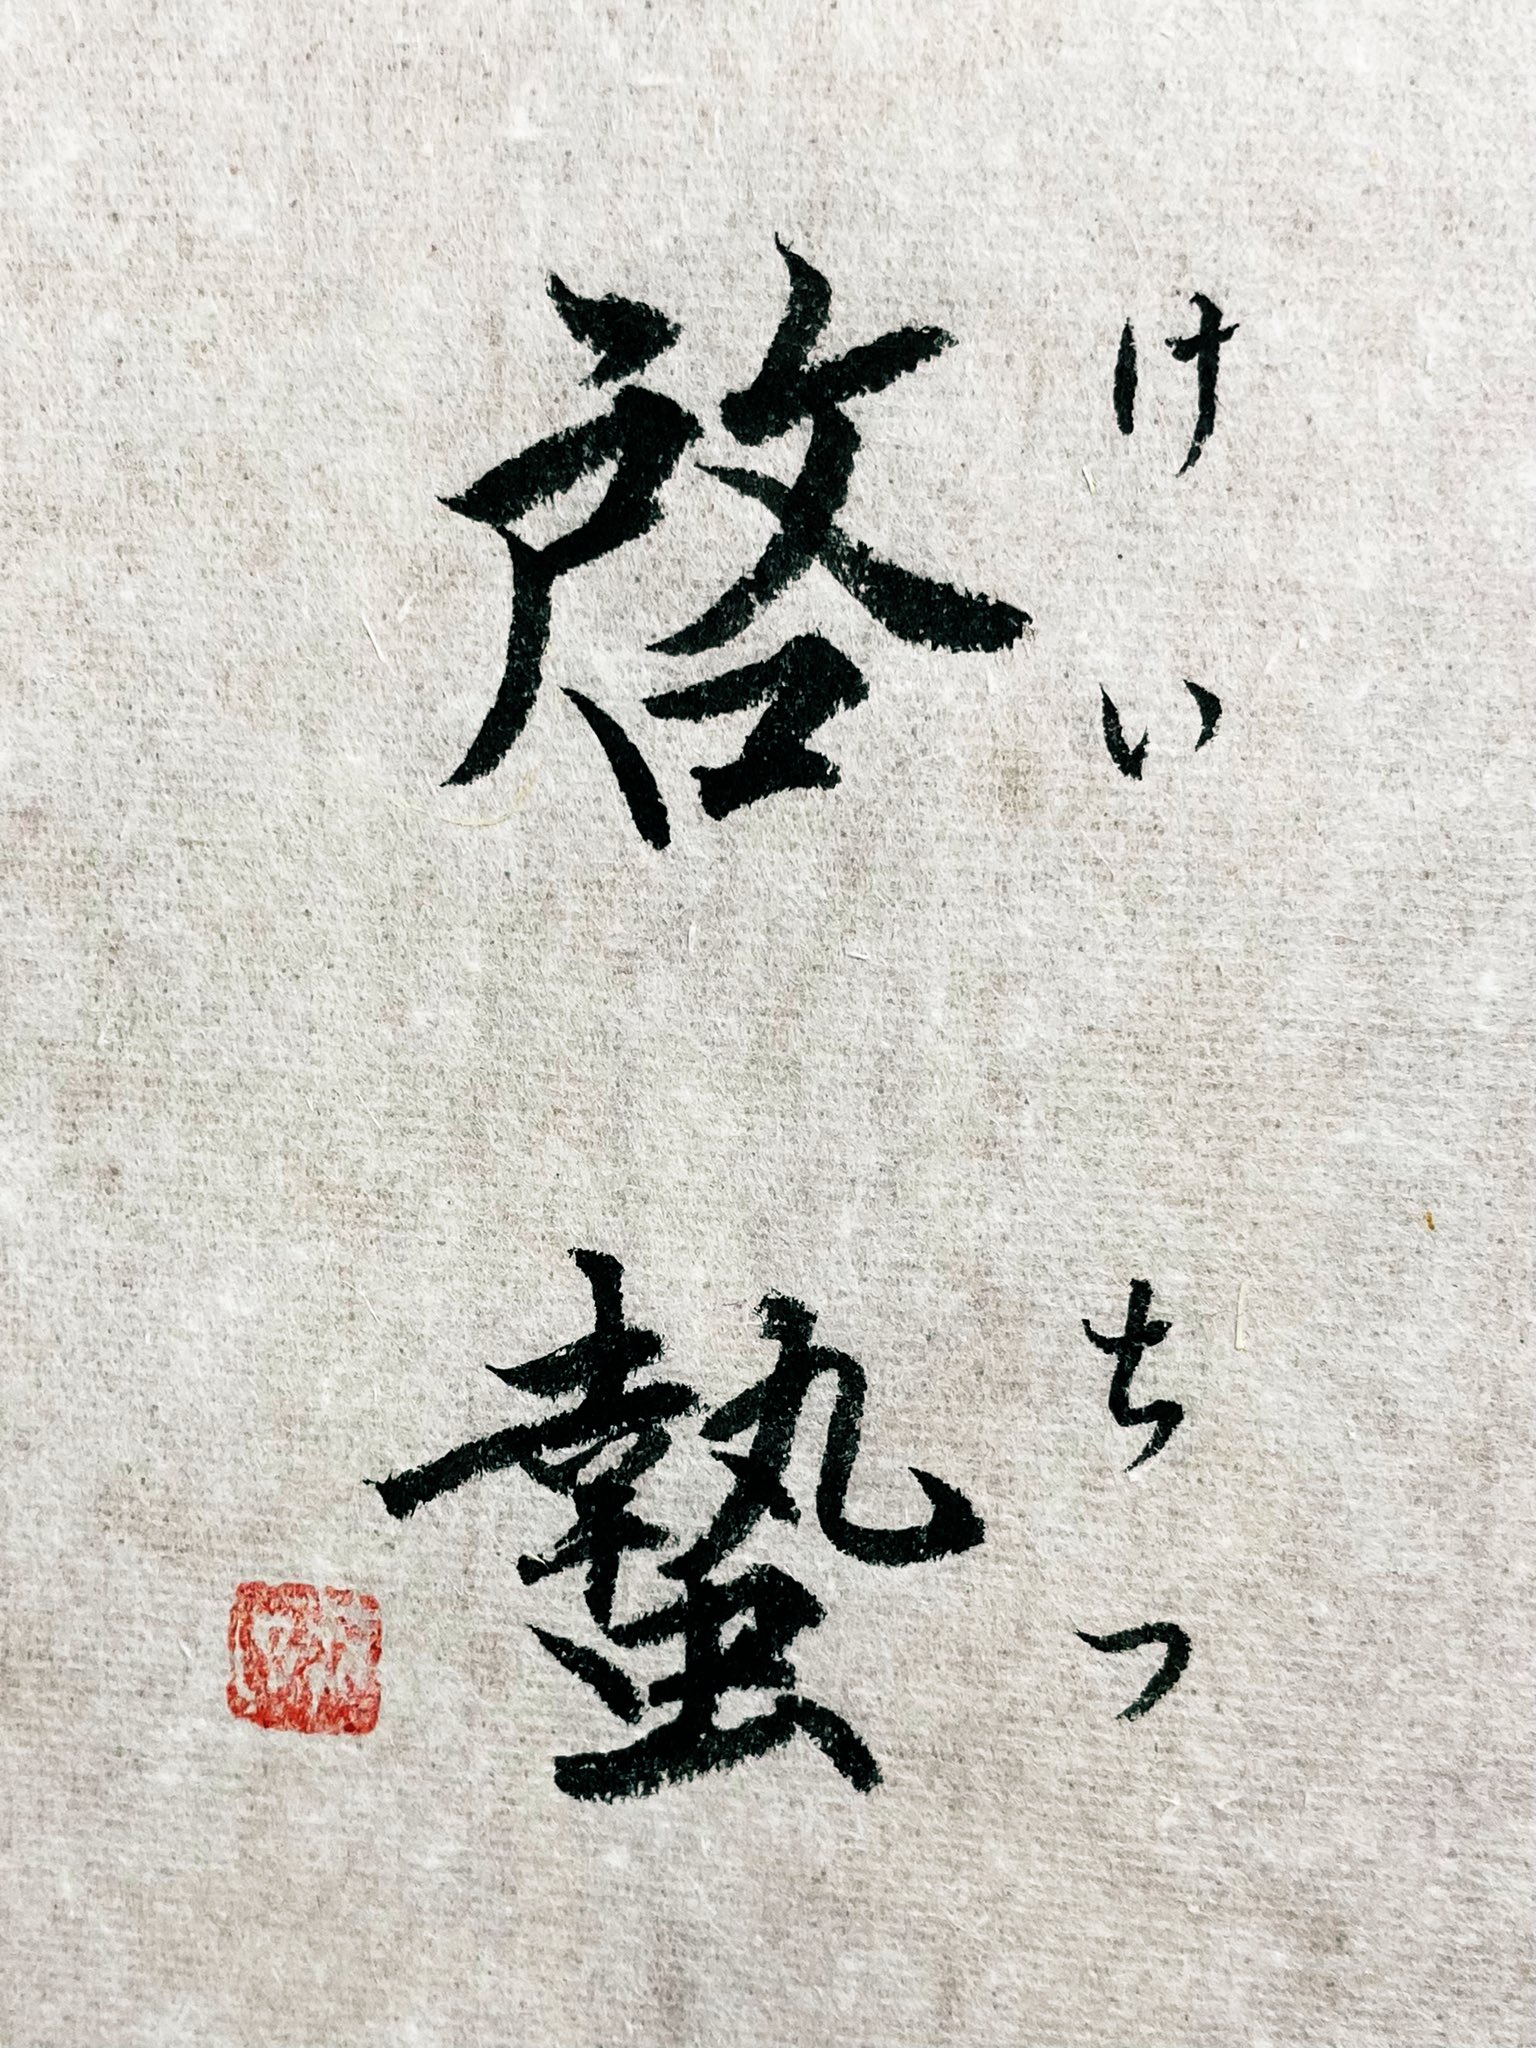 けいちつ
啓蟄